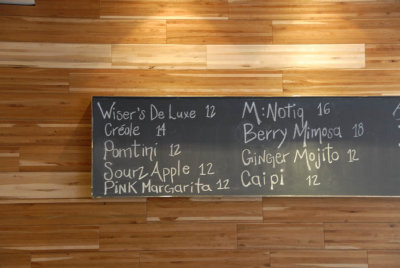 Wiser's De Luxe 12
Créole 14
Pomtini 12
Sourz Apple 12
Pink Margarita 12
M:Notiq 16
Berry Mimosa 18
Ginger Mojito 12
Caipi 12